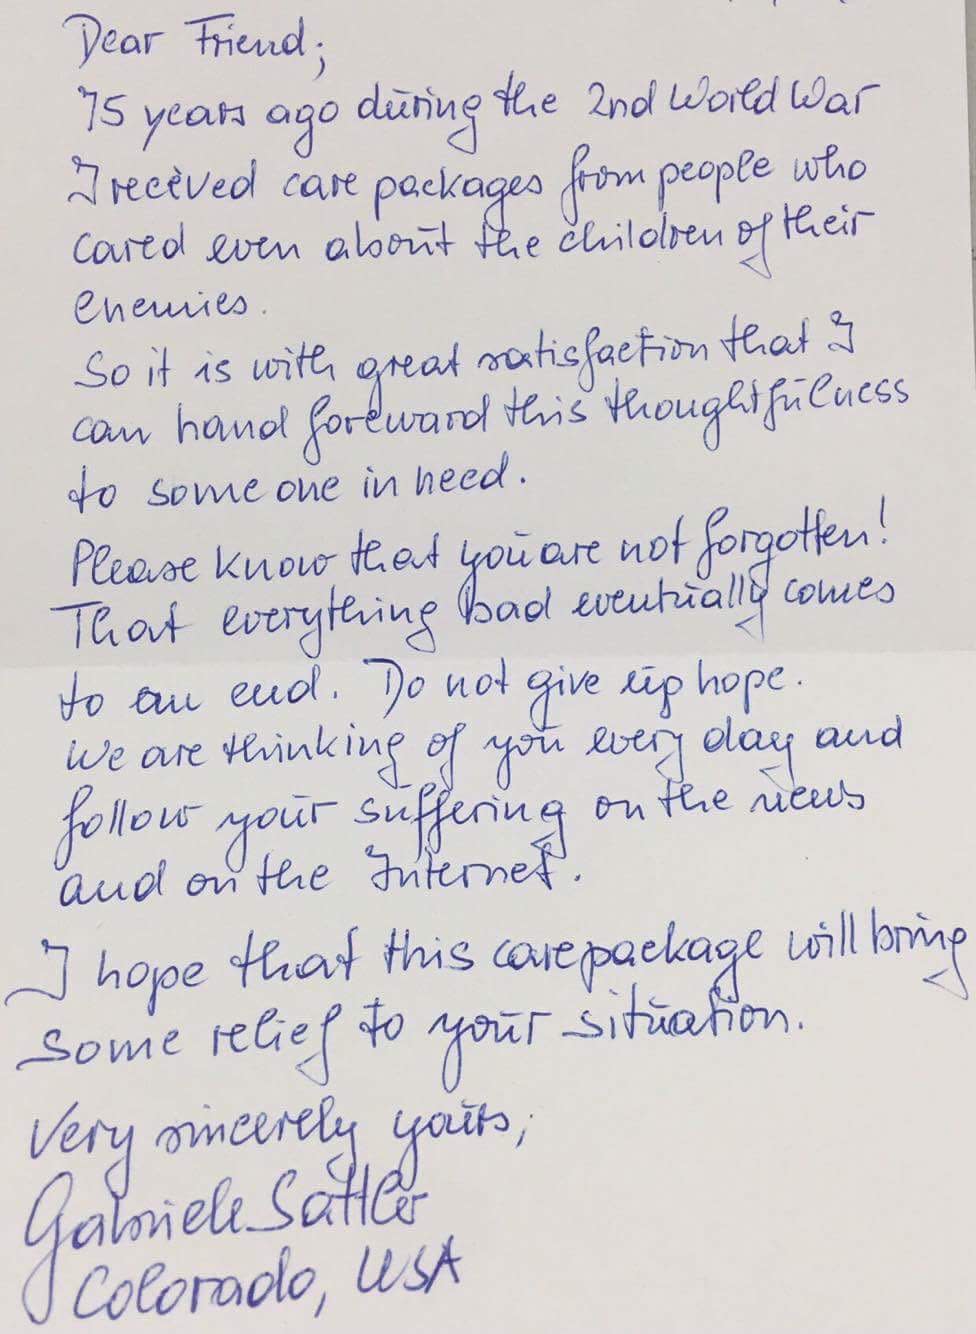 Dear Friend;
75 years ago during the 2nd World War
I recèved care packages from people who
cared even about the children of their
enemies.
So it is with great satisfaction that I
can hand foreward this thoughtfulness
to someone in need.
Please know that you are not forgotten!
That everything bad eventually comes
to an end. Do not give up hope.
We are thinking of you every day and
follow your suffering on the news
and on the Internet.
I hope that this carepackage will bring
some relief to your situation.
Very sincerely yours,
Gabriele Sattler
Colorado, USA